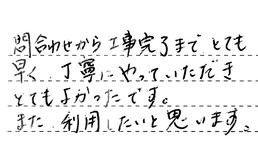 問合わせから工事完了までとても
早く、丁寧にやっていただき
とてもよかったです。
また、利用したいと思います。